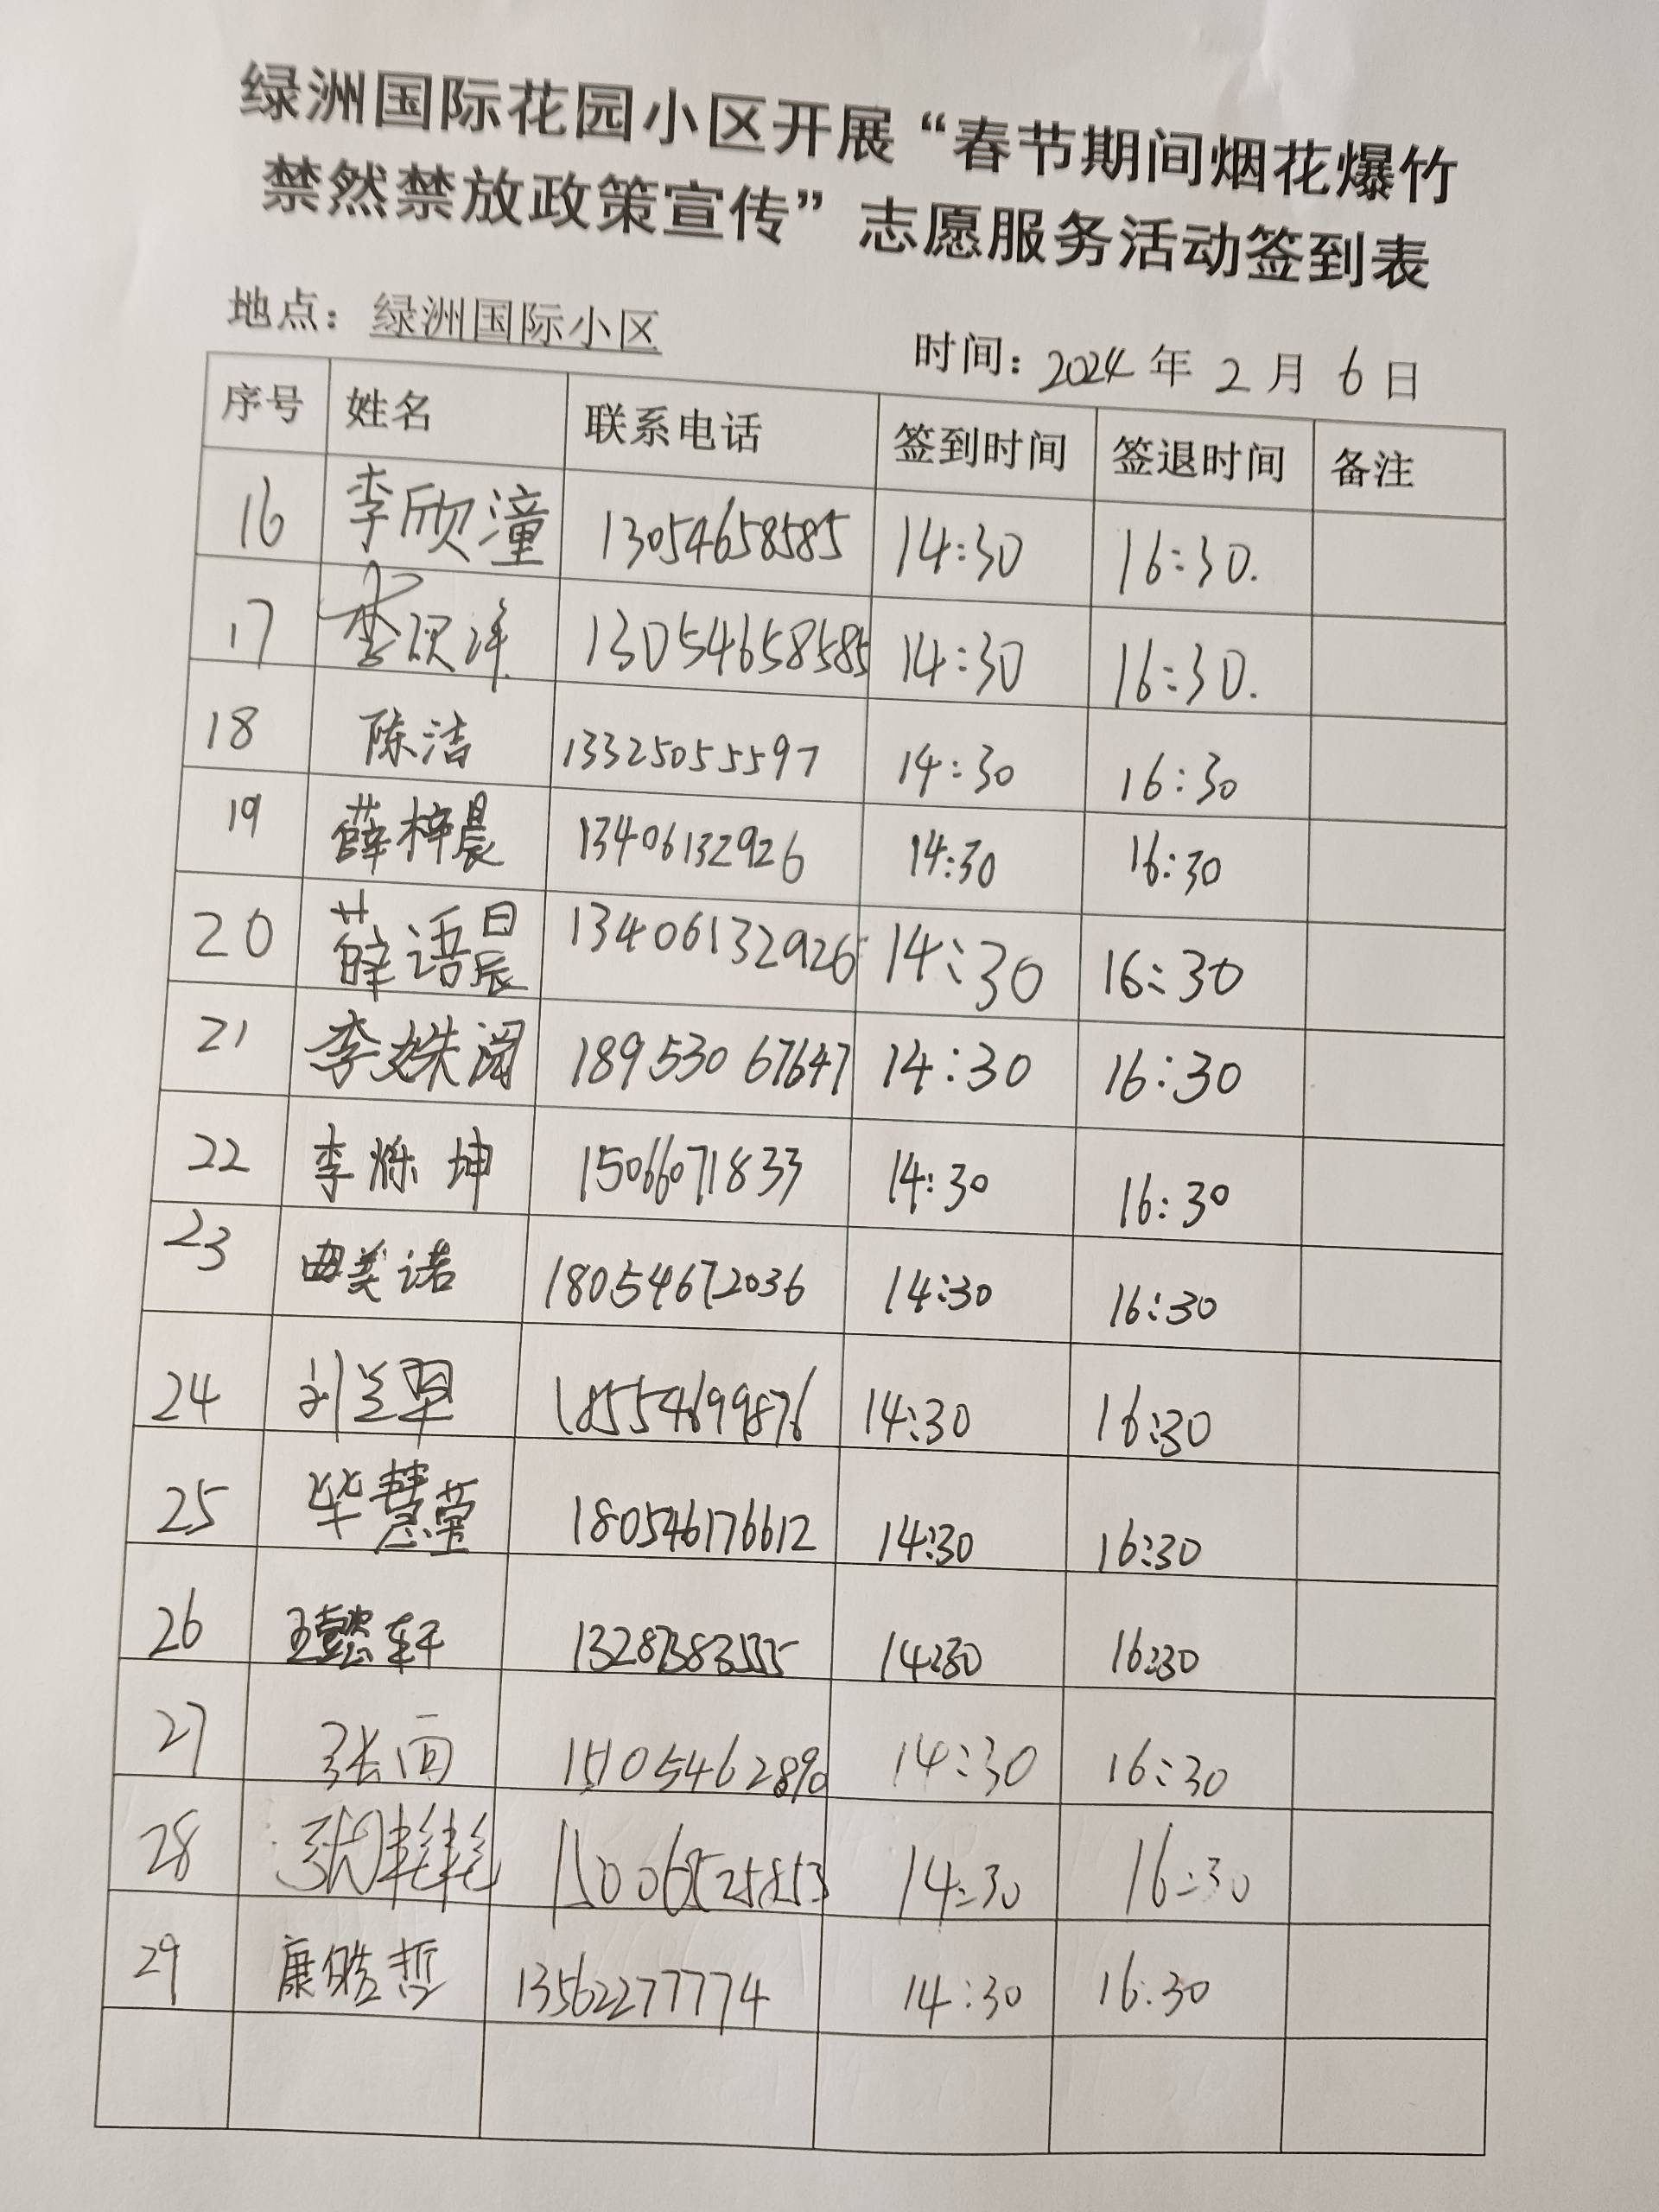 绿洲国际花园小区开展“春节期间烟花爆竹
禁然禁放政策宣传”志愿服务活动签到表
地点：绿洲国际小区 时间：2024年2月6日
序号 姓名 联系电话 签到时间 签退时间 备注
16 李欣潼 13054658585 14:30 16:30.
17 李欣洋 13054658585 14:30 16:30.
18 陈洁 13325055597 14:30 16:30
19 薛梓晨 13406132926 14:30 16:30
20 薛语晨 13406132926 14:30 16:30
21 李姝阅 18953067647 14:30 16:30
22 李烁坤 15066071833 14:30 16:30
23 曲美诺 18054672036 14:30 16:30
24 刘兰翠 18554699876 14:30 16:30
25 毕慧莹 180546176612 14:30 16:30
26 王懿轩 13287383555 14:30 16:30
27 张 14:30 16:30
28 14:30 16:30
29 康皓哲 13562277774 14:30 16:30